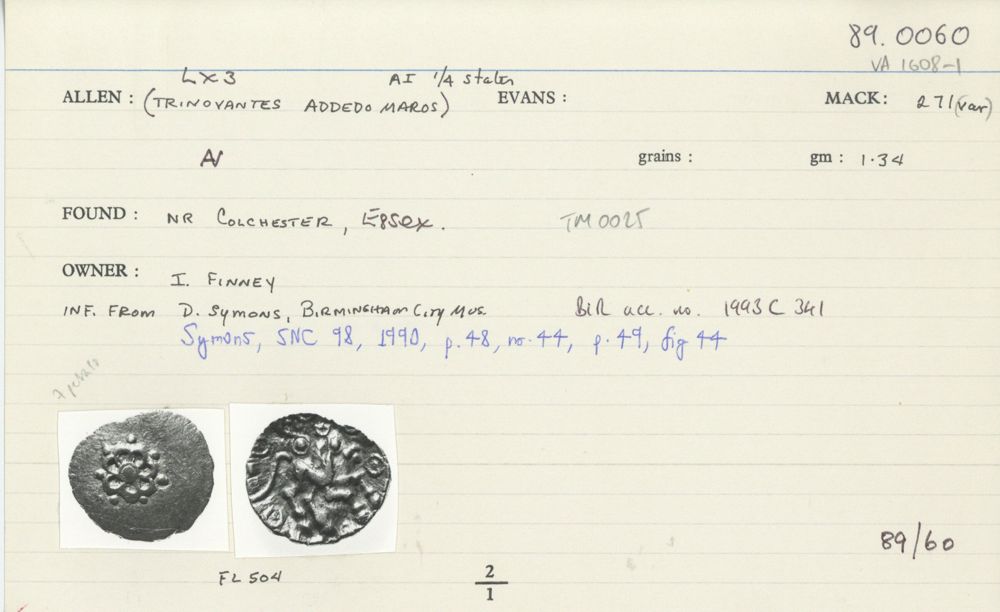 89.0060
VA 1608-1
LX3 AI 1/4 stater
ALLEN : (TRINOVANTES ADDEDOMAROS) EVANS : MACK: 271 (var)
AV grains : gm : 1.34
FOUND : NR COLCHESTER, Essex. TM0025
OWNER : I. FINNEY
INF. FROM D. SYMONS, BIRMINGHAM CITY MUS. BIR acc. no. 1993 C 341
Symons, SNC 98, 1990, p.48, no.44, p.49, fig 44
7 petals
89/60
FL 504
2
1